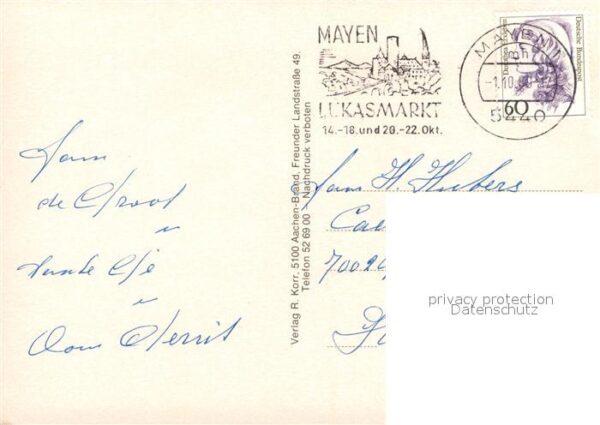 MAYEN
LUKASMARKT
14.-18. und 20.-22. Okt.
MAYEN 1
5440
60
Deutsche Bundespost
Verlag R. Korr, 5100 Aachen-Brand, Freunder Landstraße 49.
Telefon 52 69 00 Nachdruck verboten
Fam
de Groot
Tante
Oom Gerrit
Fam H. Hubers
privacy protection
Datenschutz